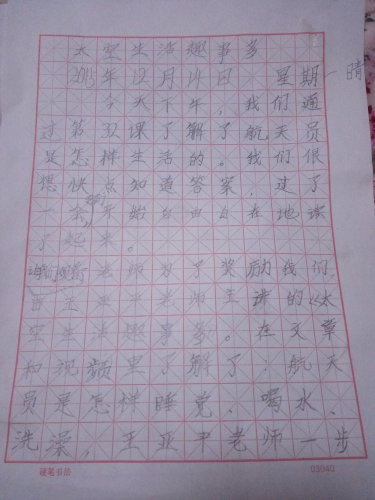 太空生活趣事多
2015年12月14日 星期一 晴
今天下午,我们通
过第32课了解了航天员
是怎样生活的。我们很
想快点知道答案,过了
一会,开始自由自在地读
了起来。
老师为了奖励我们,
王亚平老师主讲的《太
空生活趣事多。在文章
和视频里了解了,航天
员是怎样睡觉、喝水、
洗澡,王亚平老师一步
硬笔书法 03040